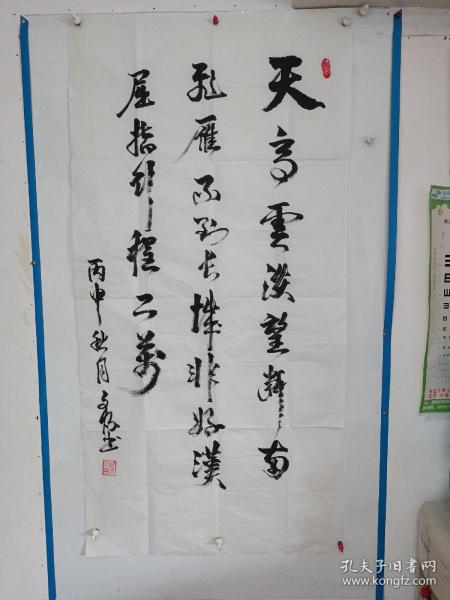 天高雲淡望斷南
飛雁不到長城非好漢
屈指行程二萬
丙申秋月
孔夫子旧书网
www.kongfz.com